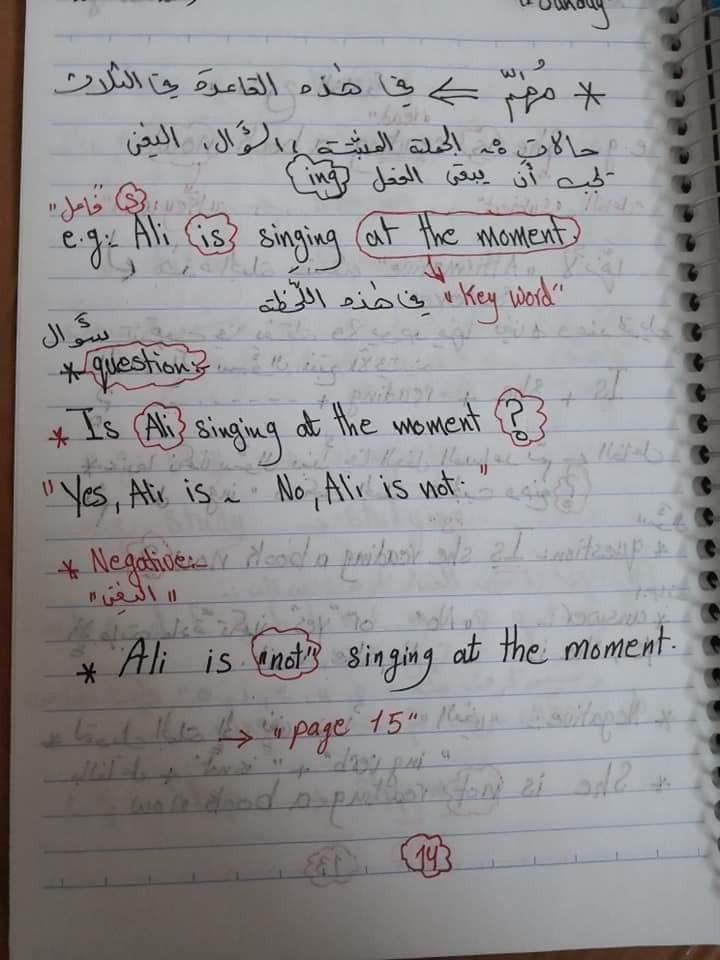 Sunday
* مُهِمّ ⇐ في هٰذه القاعدة في الثلاث
حالات من الجملة المثبتة، السؤال، النفي
يجب أن يبقى الفعل ing
"فاعل" S
e.g:- Ali is singing at the moment
في هٰذه اللَّحظة "Key word"
سؤال
* question:-
* Is Ali singing at the moment ?
"Yes, Ali is ~ No, Ali is not."
* Negative:-
"النفي"
* Ali is "not" singing at the moment.
→ "page 15"
14